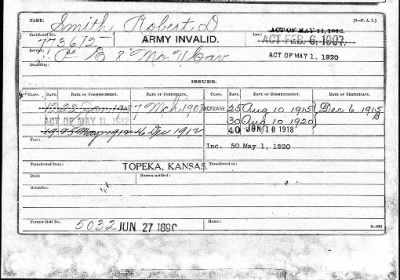 NAME: Smith, Robert D.
(3—P. A. I.)
Certificate No. 773612
ARMY INVALID.
ACT OF MAY 11, 1912.
ACT FEB. 6, 1907.
8" Mo. Cav
ACT OF MAY 1, 1920
ISSUES.
CLASS. RATE. DATE OF COMMENCEMENT. DATE OF CERTIFICATE. CLASS. RATE. DATE OF COMMENCEMENT. DATE OF CERTIFICATE.
7 Mch 1907 INCREASE 25 Aug 10 1915 Dec 6 1915
ACT OF MAY 11 1912
30 Aug 10 1920
1912 Dec 1912
40 JUN 10 1918
Inc. 50 May 1, 1920
Transferred from
TOPEKA, KANSAS
Transferred to
Died
Dawes notified:
Remarks:
Former Roll No. 5032 JUN 27 1890
Home: